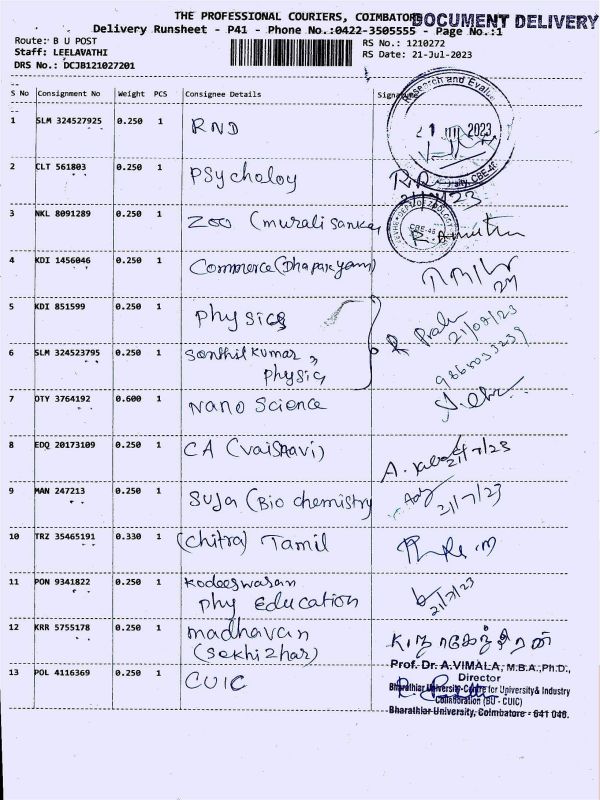 THE PROFESSIONAL COURIERS, COIMBATORE
DOCUMENT DELIVERY
Delivery Runsheet - P41 - Phone No.:0422-3505555 - Page No.:1
Route: B U POST
RS No.: 1210272
Staff: LEELAVATHI
RS Date: 21-Jul-2023
DRS No.: DCJB121027201
S No Consignment No Weight PCS Consignee Details Signature
1 SLM 324527925 0.250 1 RND
Research and Evalu
21 JUL 2023
sity, CBE-46
2 CLT 561803 0.250 1 PSycholoy
3 NKL 8091289 0.250 1 ZOO (murali sankar
DEPT OF ZOOLOGY
CBE-46
4 KDI 1456046 0.250 1 Commerce (Dhaparayam)
5 KDI 851599 0.250 1 physics
21/07/23
6 SLM 324523795 0.250 1 Senthilkumar,
physic,
7 OTY 3764192 0.600 1 Nano Science
8 EDQ 20173109 0.250 1 CA (Vaisnavi)
21/7/23
9 MAN 247213 0.250 1 Suja (Bio chemistry
21/7/23
10 TRZ 35465191 0.330 1 (chitra) Tamil
11 PON 9341822 0.250 1 Kodeeswasan
phy Education
21/7/23
12 KRR 5755178 0.250 1 madhavan
(Sekhizhar)
13 POL 4116369 0.250 1 CUIC
Prof. Dr. A.VIMALA, M.B.A.,Ph.D.,
Director
Bharathiar University-Centre for University & Industry
Collaboration (BU - CUIC)
Bharathiar University, Coimbatore - 641 046.